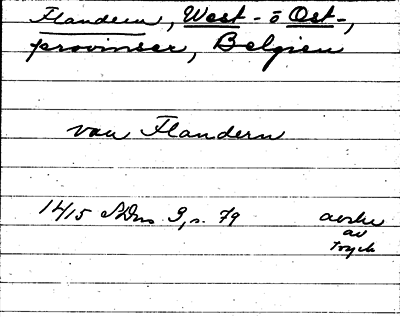 Flandern, West- o Ost-,
provinser, Belgien
van Flandern
1415 SDns 3, s. 79
avskr
av
tryck